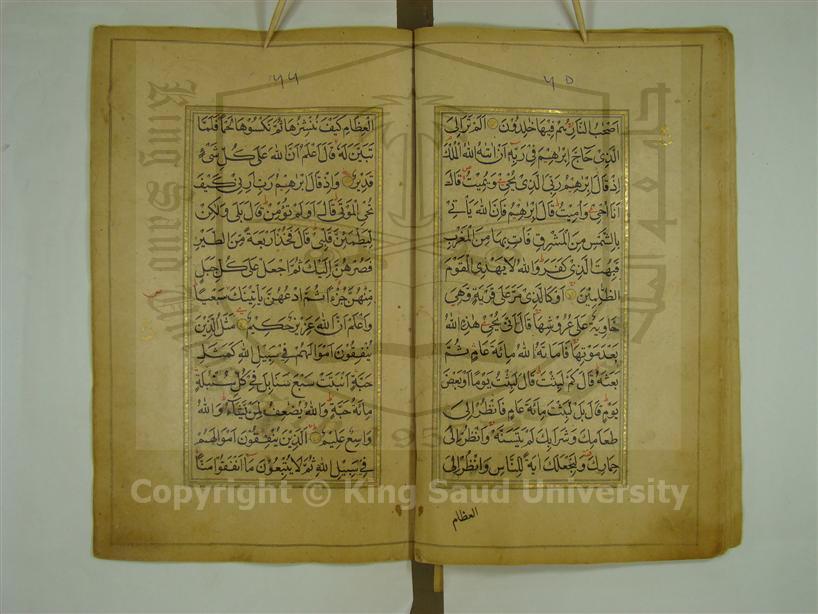 ٦٥
اصحب النار هم فيها خلدون الم تر الى
الذي حاج ابرهيم في ربه ان اتىه الله الملك
اذ قال ابرهيم ربي الذي يحيي ويميت قال
انا احيي واميت قال ابرهيم فان الله ياتي
بالشمس من المشرق فات بها من المغرب
فبهت الذي كفر والله لا يهدي القوم
الظلمين او كالذي مر على قرية وهي
خاوية على عروشها قال انى يحيي هذه الله
بعد موتها فاماته الله مائة عام ثم
بعثه قال كم لبثت قال لبثت يوما او بعض
يوم قال بل لبثت مائة عام فانظر الى
طعامك وشرابك لم يتسنه وانظر الى
حمارك ولنجعلك اية للناس وانظر الى
العظام
٦٦
العظام كيف ننشزها ثم نكسوها لحما فلما
تبين له قال اعلم ان الله على كل شيء
قدير واذ قال ابرهيم رب ارني كيف
تحي الموتى قال او لم تؤمن قال بلى ولكن
ليطمئن قلبي قال فخذ اربعة من الطير
فصرهن اليك ثم اجعل على كل جبل
منهن جزءا ثم ادعهن ياتينك سعيا
واعلم ان الله عزيز حكيم مثل الذين
ينفقون اموالهم في سبيل الله كمثل
حبة انبتت سبع سنابل في كل سنبلة
مائة حبة والله يضعف لمن يشاء والله
واسع عليم الذين ينفقون اموالهم
في سبيل الله ثم لا يتبعون ما انفقوا منا
Copyright © King Saud University
King Saud
1957